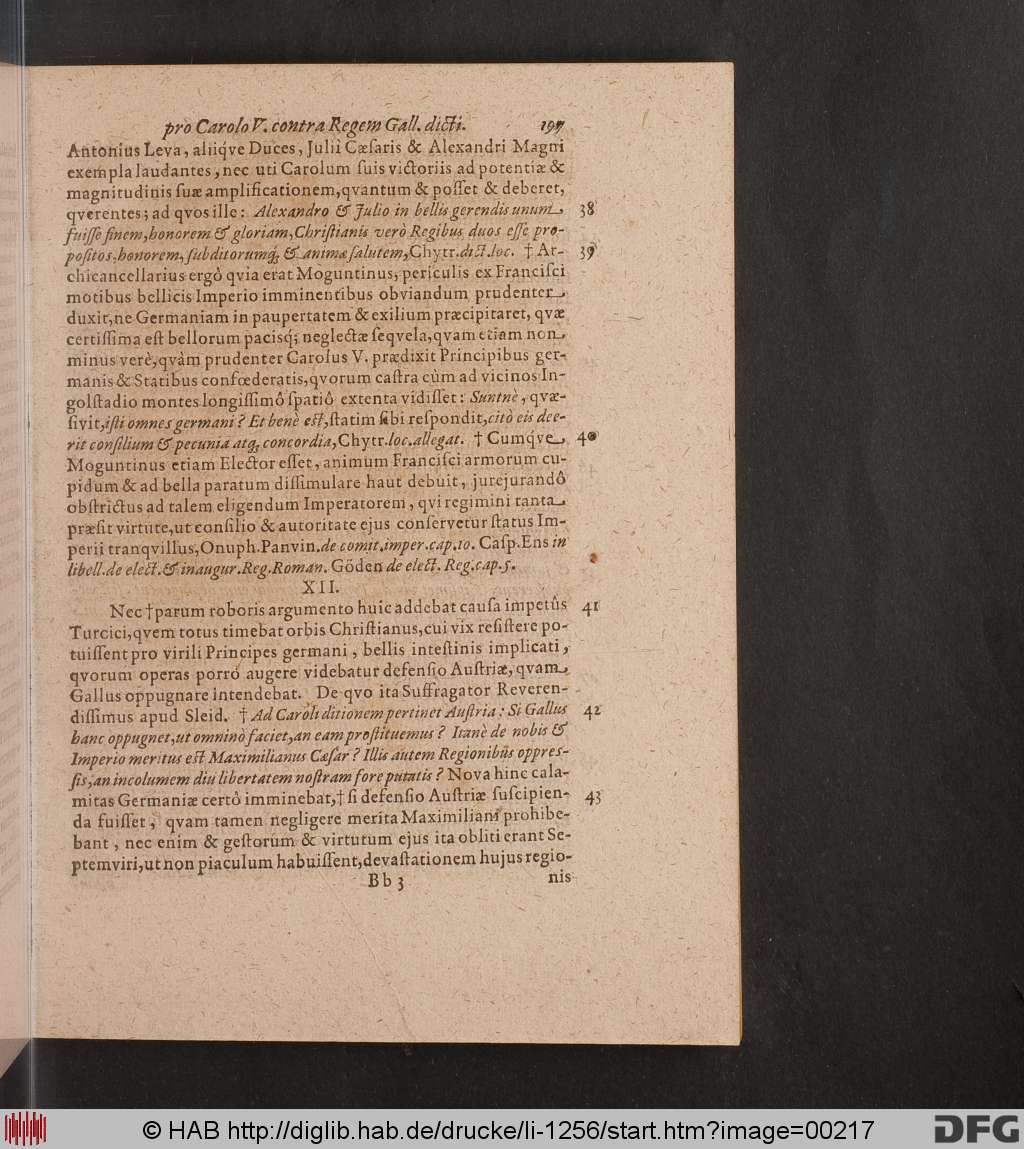 pro Carolo V. contra Regem Gall. dicti. 197
Antonius Leva, aliiqve Duces, Julii Cæſaris & Alexandri Magni
exempla laudantes, nec uti Carolum ſuis victoriis ad potentiæ &
magnitudinis ſuæ amplificationem, qvantum & poſſet & deberet,
qverentes; ad qvos ille: Alexandro & Julio in bellis gerendis unum 38
fuiſſe finem, honorem & gloriam, Chriſtianis verò Regibus duos eſſe pro-
poſitos, honorem, ſubditorumq; & animæ ſalutem, Chytr. dict. loc. † Ar- 39
chicancellarius ergò qvia erat Moguntinus, periculis ex Franciſci
motibus bellicis Imperio imminentibus obviandum prudenter
duxit, ne Germaniam in paupertatem & exilium præcipitaret, qvæ
certiſſima eſt bellorum pacisq; neglectæ ſeqvela, qvam etiam non
minus verè, qvàm prudenter Carolus V. prædixit Principibus ger-
manis & Statibus confœderatis, qvorum caſtra cùm ad vicinos In-
golſtadio montes longiſſimô ſpatiô extenta vidiſſet: Suntnè, qvæ-
ſivit, iſti omnes germani? Et benè eſt, ſtatim ſibi reſpondit, citò eis dee-
rit conſilium & pecunia atq; concordia, Chytr. loc. allegat. † Cumqve 40
Moguntinus etiam Elector eſſet, animum Franciſci armorum cu-
pidum & ad bella paratum diſſimulare haut debuit, jurejurandô
obſtrictus ad talem eligendum Imperatorem, qvi regimini tanta
præſit virtute, ut conſilio & autoritate ejus conſervetur ſtatus Im-
perii tranqvillus, Onuph. Panvin. de comit. imper. cap. 10. Caſp. Ens in
libell. de elect. & inaugur. Reg. Roman. Göden de elect. Reg. cap. 5.
XII.
Nec † parum roboris argumento huic addebat cauſa impetûs 41
Turcici, qvem totus timebat orbis Chriſtianus, cui vix reſiſtere po-
tuiſſent pro virili Principes germani, bellis inteſtinis implicati,
qvorum operas porrò augere videbatur defenſio Auſtriæ, qvam
Gallus oppugnare intendebat. De qvo ita Suffragator Reveren-
diſſimus apud Sleid. † Ad Caroli ditionem pertinet Auſtria: Si Gallus 42
hanc oppugnet, ut omninò faciet, an eam proſtituemus? Itanè de nobis &
Imperio meritus eſt Maximilianus Cæſar? Illis autem Regionibûs oppreſ-
ſis, an incolumem diu libertatem noſtram fore putatis? Nova hinc cala-
mitas Germaniæ certò imminebat, † ſi defenſio Auſtriæ ſuſcipien- 43
da fuiſſet, qvam tamen negligere merita Maximiliani prohibe-
bant, nec enim & geſtorum & virtutum ejus ita obliti erant Se-
ptemviri, ut non piaculum habuiſſent, devaſtationem hujus regio-
Bb 3 nis
© HAB http://diglib.hab.de/drucke/li-1256/start.htm?image=00217
DFG